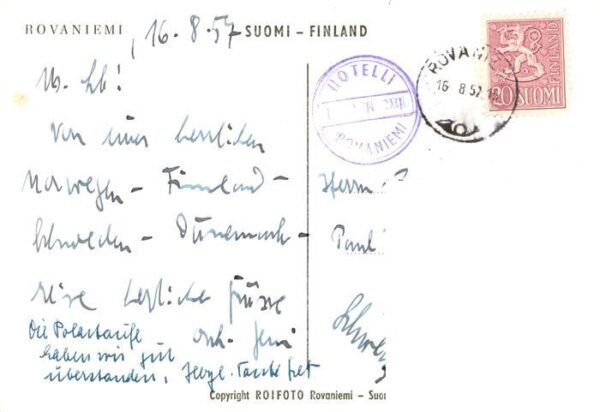 ROVANIEMI, 16.8.57 SUOMI – FINLAND
M. Lb!
Von einer herrlichen
Norwegen – Finnland –
Schweden – Dänemark –
reise herzliche Grüsse
Onk.
Die Polartaufe
haben wir gut
überstanden, Herzl. Tante
HOTELLI
ROVANIEMI
ROVANIEMI
16.8.57
20 SUOMI
FINLAND
Herrn
Paul
Schwe
Copyright ROIFOTO Rovaniemi – Suo